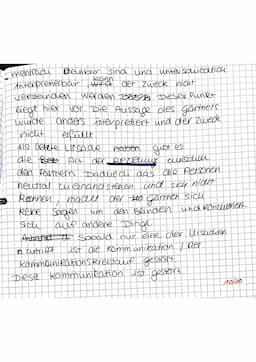 mehrfach Deutbar sind und unterschiedlich
Interpretierbar kann der Zweck nicht
verstanden werden. Dieser Punkt
liegt hier vor. Die Aussage des Gärtners
wurde anders interpretiert und der Zweck
nicht erfüllt
Als Ursache gibt es
die Art der Beziehung zwischen
den Partnern. Dadurch das die Personen
neutral zueinand stehen und sich nicht
kennen, macht der Gärtner sich
keine Sorgen um den Blinden und konzentriert
sich auf andere Dinge.
Sobald nur eine der Ursachen
zutrifft ist die Kommunikation / Der
Kommunikationskreislauf gestört.
Diese Kommunikation ist gestört.
10/10